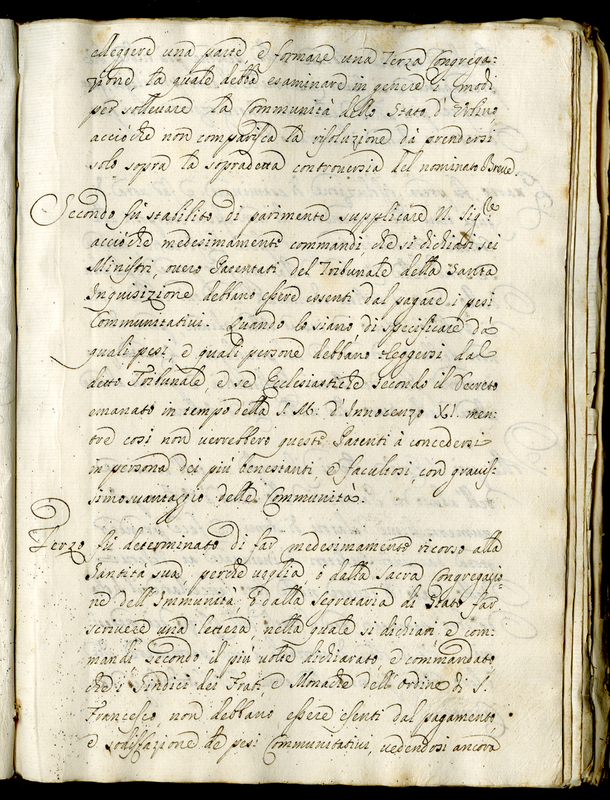 eleggere una parte, e formare una Terza Congrega-
zione, la quale debba esaminare in genere i modi
per sollevare la Communità dello Stato d'Urbino,
acciòche non comparisca la risoluzione dà prendersi
solo sopra la sopradetta controversia del nominato Breve.
Secondo fù stabilito di parimente supplicare N. Sig.re
acciòche medesimamente commandi che si dichiari se i
Ministri, overo Patentati del Tribunale della Santa
Inquisizione debbano essere essenti dal pagare i pesi
Communitativi. Quando lo siano di specificare dà
quali pesi, e quali persone debbano eleggersi dal
detto Tribunale, e se Ecclesiastiche secondo il Decreto
emanato in tempo della S. M. d'Innocenzo XI. men-
tre così non verrebbero queste Patenti à concedersi
in persona dei più benestanti e facultosi, con gravis-
simo svantaggio delle Communità.
Terzo fù determinato di far medesimamente ricorso alla
Santità sua, perche voglia ò dalla Sacra Congregazio-
ne dell'Immunità, ò dalla Segretaria di Stato far
scrivere una lettera nella quale si dichiari e com-
mandi secondo il più volte dichiarato, e commandato
che i Sindici dei Frati, e Monache dell'Ordine di S.
Francesco non debbano essere esenti dal pagamento
e sodisfazione de pesi Communitativi, vedendosi ancora